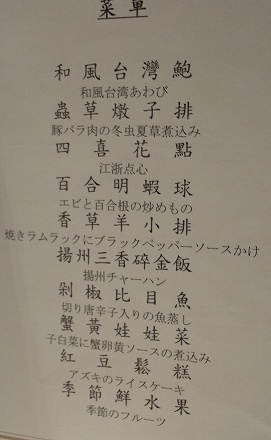 菜單
和風台灣鮑
和風台湾あわび
蟲草燉子排
豚バラ肉の冬虫夏草煮込み
四喜花點
江浙点心
百合明蝦球
エビと百合根の炒めもの
香草羊小排
焼きラムラックにブラックペッパーソースかけ
揚州三香碎金飯
揚州チャーハン
剁椒比目魚
切り唐辛子入りの魚蒸し
蟹黃娃娃菜
子白菜に蟹卵黄ソースの煮込み
紅豆鬆糕
アズキのライスケーキ
季節鮮水果
季節のフルーツ